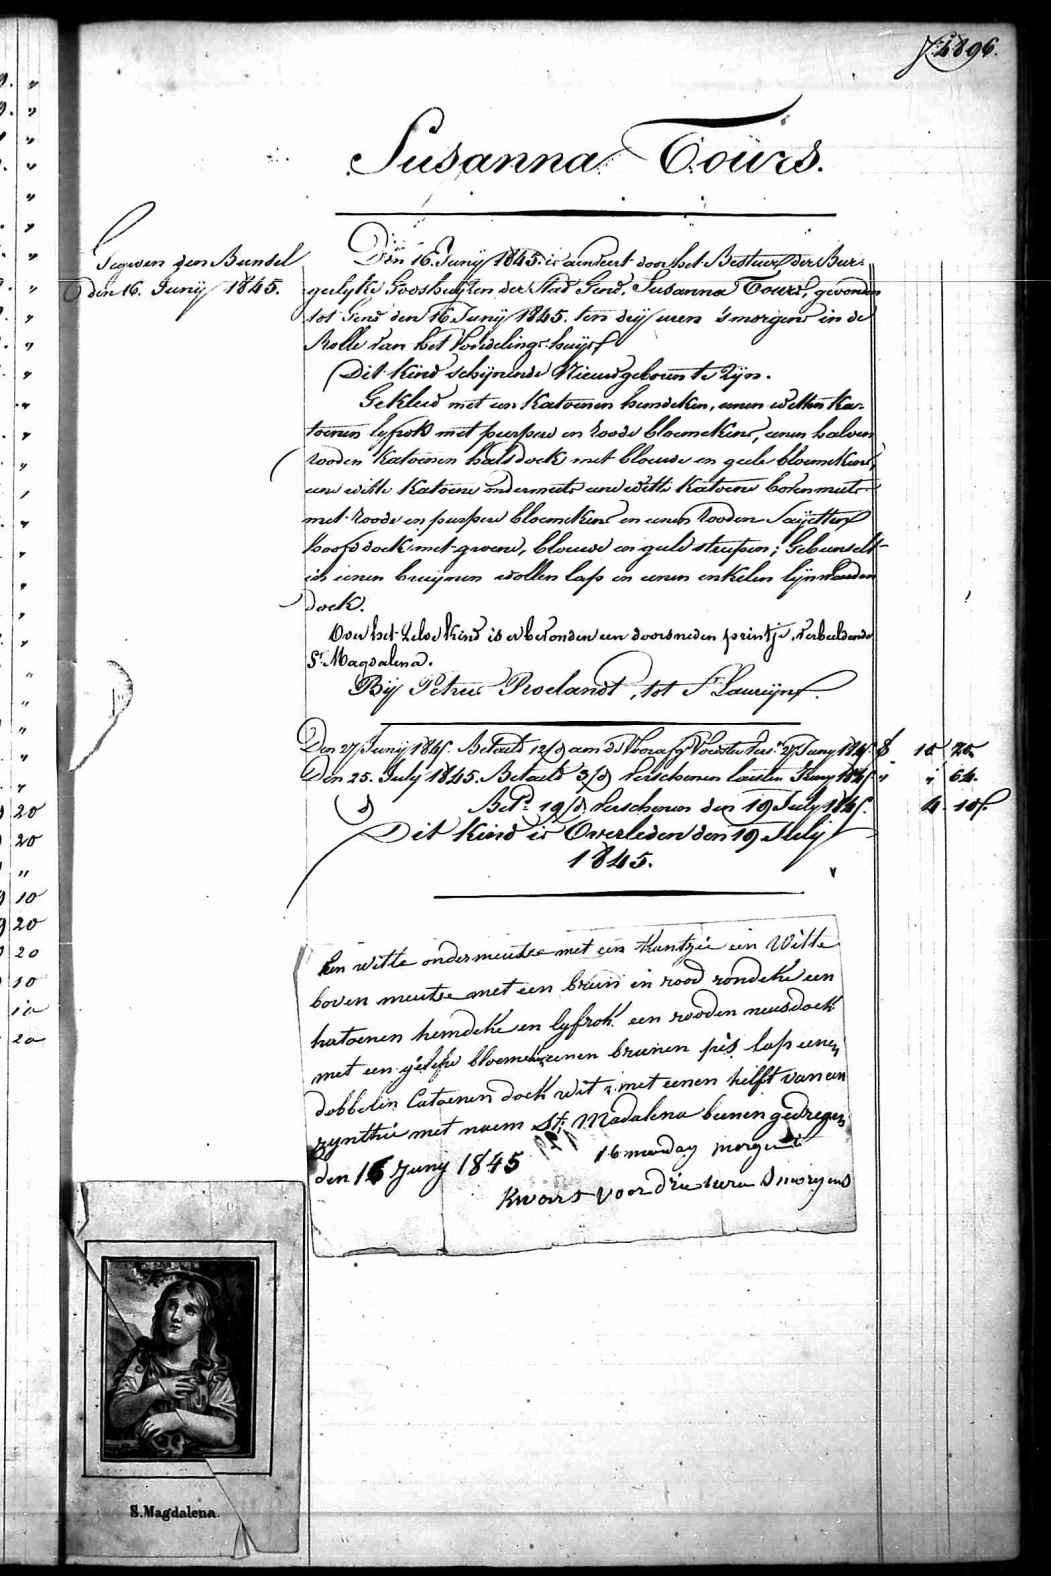 4896.
Susanna Toürs.
Gegeven den Bundel
den 16. Junij 1845.
Den 16. Junij 1845. is aenveert door het Bestuur der Bur-
gerlyke Godshuyzen der Stad Gend, Susanna Tours, gevonden
tot Gend den 16 Junij 1845. ten dry uren 's morgens in de
Rolle van het Vondelings-huys
Dit kind schynende Nieuwgeboren te Zyn.
Gekleed met een Katoenen hemdeken, eenen witten Ka-
toenen lyfrok met purpere en roode bloemekens, eenen halven
rooden Katoenen halsdoek met blauwe en geele bloemekens,
eene witte Katoene ondermuts eene witte Katoene bovenmuts
met roode en purpere bloemekens en eenen rooden Sayetten
hoofddoek met groene, blauwe en geele streepen; Gebunselt
in eenen bruynen wollen lap en eenen enkelen lynwaeden
doek.
Over het Zelve kind is er bevonden een doorsneden printje, verbeeldende
St. Magdalena.
Bij Petrus Roelandt, tot St. Laureyns.
Den 27 Junij 1845. Betaeld 12/d aen de Voorafg Voedster vers. 27 Juny 1845. 10 20
Den 25. July 1845. Betaeld 3/d verschenen laesten Juny 1845 " " 64.
Bet. 19/d verschenen den 19 July 1845. 4 10
Dit kind is Overleden den 19 July
1845.
Een witte ondermeutse met een Kantzie een Witte
boven meutse met een bruin en rood rondeke een
katoenen hemdeke en lyfrok een rooden neusdoek
met een geleke bloemeke eenen bruinen pis lap eenen
dobbelen Catoenen doek wit met eenen helft van een
zynthie met naem St. Madalena beenen gedregen
den 16 Juny 1845 16 maendag morgent
Kwart voor drie huren Smorgens
S. Magdalena.
20
20
"
10
20
20
10
10
20